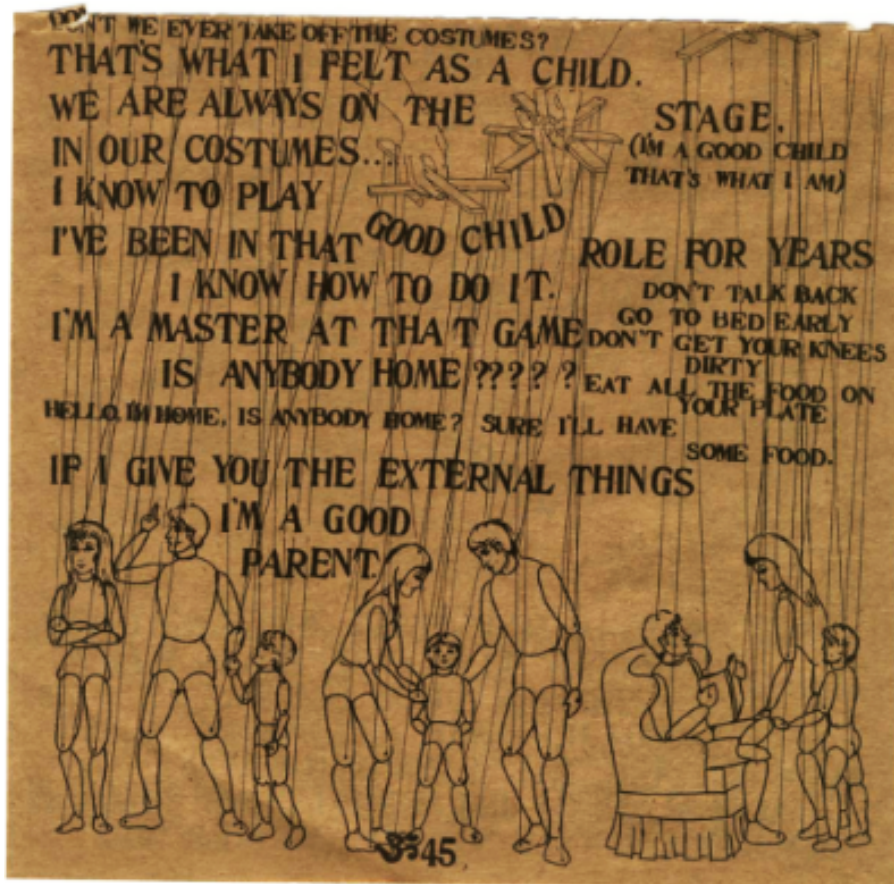 DON'T WE EVER TAKE OFF THE COSTUMES?
THAT'S WHAT I FELT AS A CHILD.
WE ARE ALWAYS ON THE STAGE.
IN OUR COSTUMES...
(I'M A GOOD CHILD
THAT'S WHAT I AM)
I KNOW TO PLAY
GOOD CHILD
I'VE BEEN IN THAT ROLE FOR YEARS
I KNOW HOW TO DO IT.
I'M A MASTER AT THAT GAME
DON'T TALK BACK
GO TO BED EARLY
DON'T GET YOUR KNEES
DIRTY
EAT ALL THE FOOD ON
YOUR PLATE
IS ANYBODY HOME ?????
HELLO, I'M HOME, IS ANYBODY HOME? SURE I'LL HAVE
SOME FOOD.
IF I GIVE YOU THE EXTERNAL THINGS
I'M A GOOD
PARENT.
45